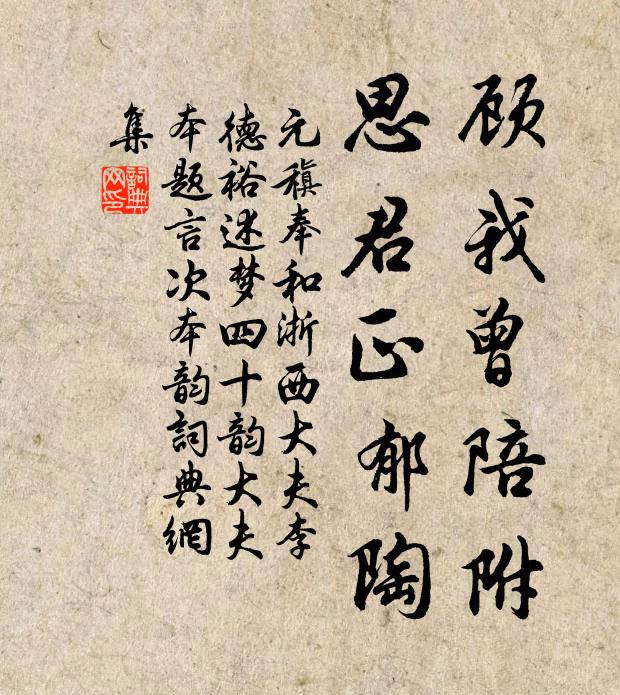 顾我曾陪附
思君正郁陶
元稹奉和浙西大夫李
德裕述梦四十韵大夫
本题言次本韵詞典網
集
詞典
网印